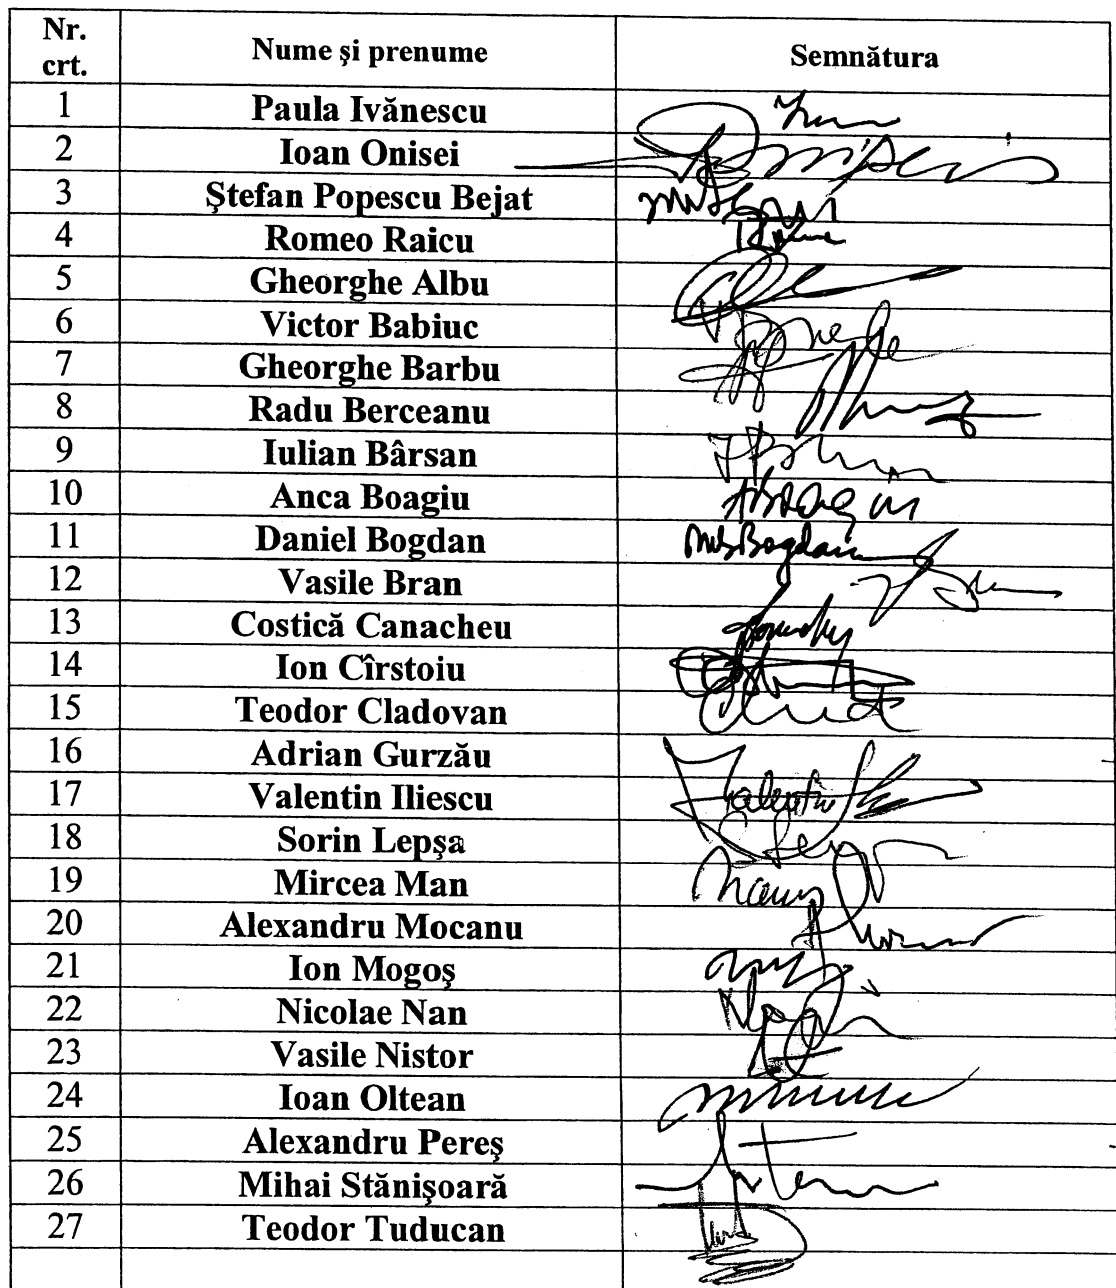 Nr. crt. Nume și prenume Semnătura
1 Paula Ivănescu
2 Ioan Onisei
3 Ștefan Popescu Bejat
4 Romeo Raicu
5 Gheorghe Albu
6 Victor Babiuc
7 Gheorghe Barbu
8 Radu Berceanu
9 Iulian Bârsan
10 Anca Boagiu
11 Daniel Bogdan
12 Vasile Bran
13 Costică Canacheu
14 Ion Cîrstoiu
15 Teodor Cladovan
16 Adrian Gurzău
17 Valentin Iliescu
18 Sorin Lepșa
19 Mircea Man
20 Alexandru Mocanu
21 Ion Mogoș
22 Nicolae Nan
23 Vasile Nistor
24 Ioan Oltean
25 Alexandru Pereș
26 Mihai Stănișoară
27 Teodor Tuducan